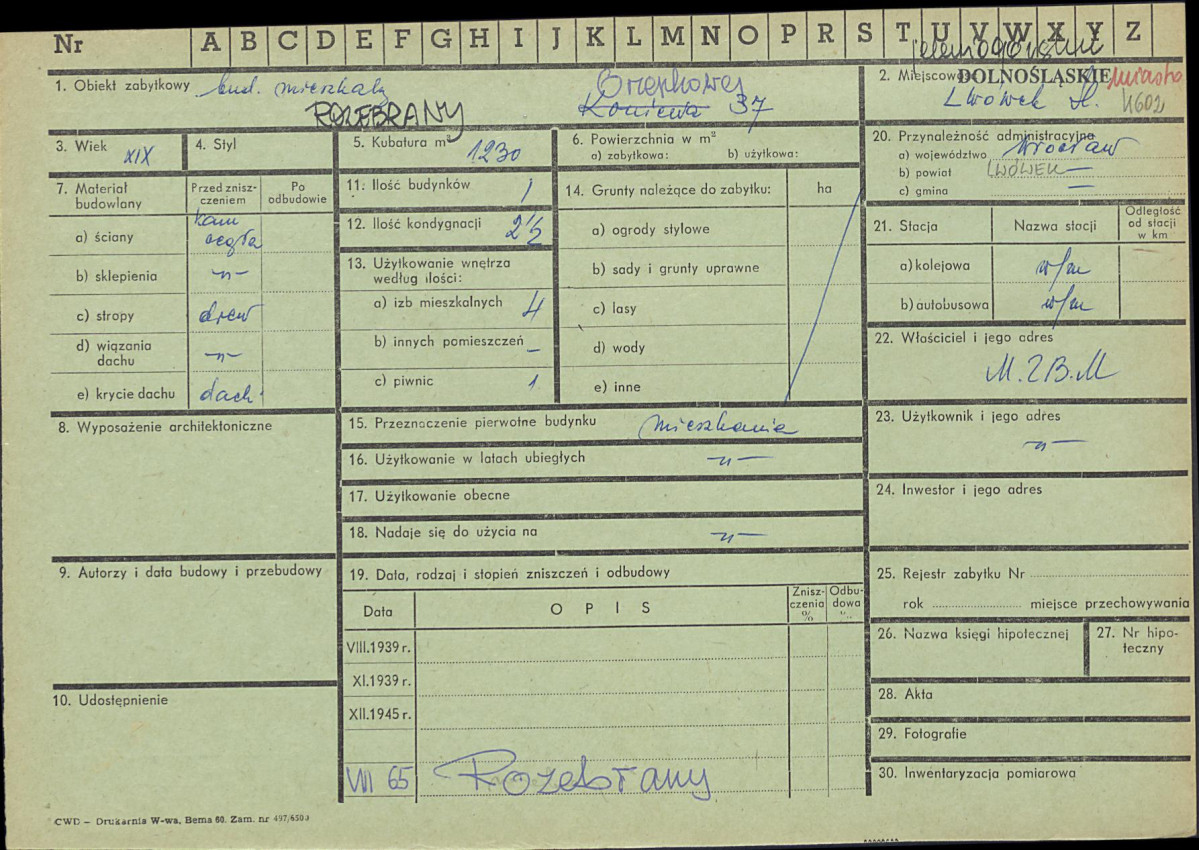 Nr A B C D E F G H I J K L M N O P R S T U V W X Y Z
1. Obiekt zabytkowy bud. mieszkalny
ROZEBRANY
Orzeszkowej
Koniewa 37
jeleniogórskie
2. Miejscowość DOLNOŚLĄSKIE miasto
Lwówek Śl. 4602
3. Wiek XIX
4. Styl
5. Kubatura m³ 1230
6. Powierzchnia w m²
a) zabytkowa: b) użytkowa:
20. Przynależność administracyjna
a) województwo Wrocław
b) powiat LWÓWEK —
c) gmina —
7. Materiał budowlany
Przed zniszczeniem
Po odbudowie
a) ściany kam cegła
b) sklepienia -"-
c) stropy drew
d) wiązania dachu -"-
e) krycie dachu dach.
11. Ilość budynków 1
12. Ilość kondygnacji 2½
13. Użytkowanie wnętrza
według ilości:
a) izb mieszkalnych 4
b) innych pomieszczeń —
c) piwnic 1
14. Grunty należące do zabytku: ha
a) ogrody stylowe
b) sady i grunty uprawne
c) lasy
d) wody
e) inne
21. Stacja Nazwa stacji Odległość od stacji w km
a) kolejowa w/m
b) autobusowa w/m
22. Właściciel i jego adres
M.Z.B.M
8. Wyposażenie architektoniczne
15. Przeznaczenie pierwotne budynku mieszkania
16. Użytkowanie w latach ubiegłych -"-
17. Użytkowanie obecne
18. Nadaje się do użycia na -"-
23. Użytkownik i jego adres
-"-
24. Inwestor i jego adres
9. Autorzy i data budowy i przebudowy
19. Data, rodzaj i stopień zniszczeń i odbudowy
Data OPIS Zniszczenia % Odbudowa %
VIII.1939 r.
XI.1939 r.
XII.1945 r.
VIII 65 Rozebrany
25. Rejestr zabytku Nr
rok miejsce przechowywania
26. Nazwa księgi hipotecznej
27. Nr hipoteczny
10. Udostępnienie
28. Akta
29. Fotografie
30. Inwentaryzacja pomiarowa
CWD — Drukarnia W-wa, Bema 60. Zam. nr 497/6500